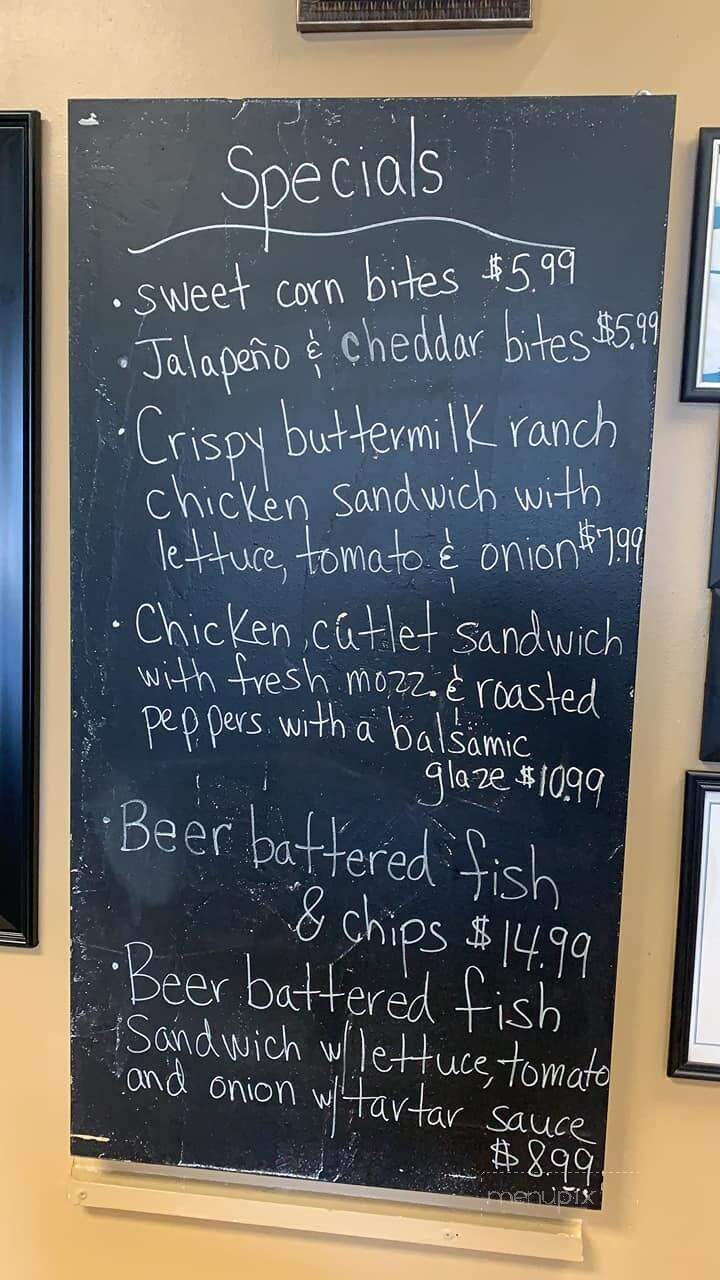 Specials
• sweet corn bites $5.99
• Jalapeño & cheddar bites $5.99
• Crispy buttermilk ranch
chicken sandwich with
lettuce, tomato & onion $7.99
• Chicken cutlet sandwich
with fresh mozz. & roasted
peppers with a balsamic
glaze $10.99
• Beer battered fish
& chips $14.99
• Beer battered fish
Sandwich w/lettuce, tomato
and onion w/tartar sauce
$8.99
menupix